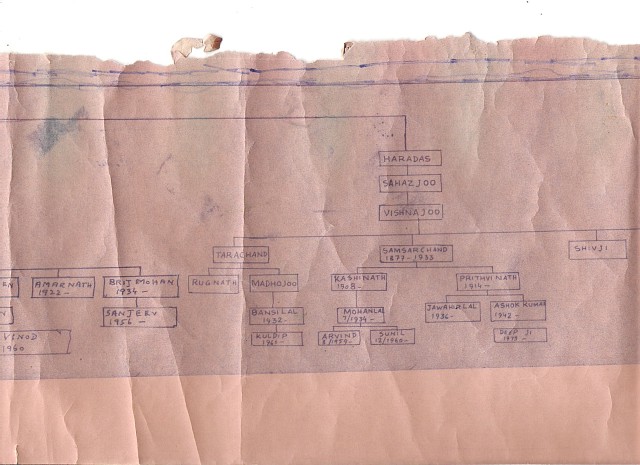 HARADAS
SAHAZJOO
VISHNAJOO
TARACHAND
SAMSARCHAND
1877-1933
SHIVJI
EN
AMARNATH
1922-
BRIJ MOHAN
1934-
RUGNATH
MADHOJOO
KASHINATH
1908-
PRITHVINATH
1914-
N
SANJEEV
1956-
BANSILAL
1432-
MOHANLAL
9/1934-
JAWAHARLAL
1936-
ASHOK KUMAR
1942-
VINOD
1960
KULDIP
1961-
ARVIND
SUNIL
12/1960-
DEEP JI